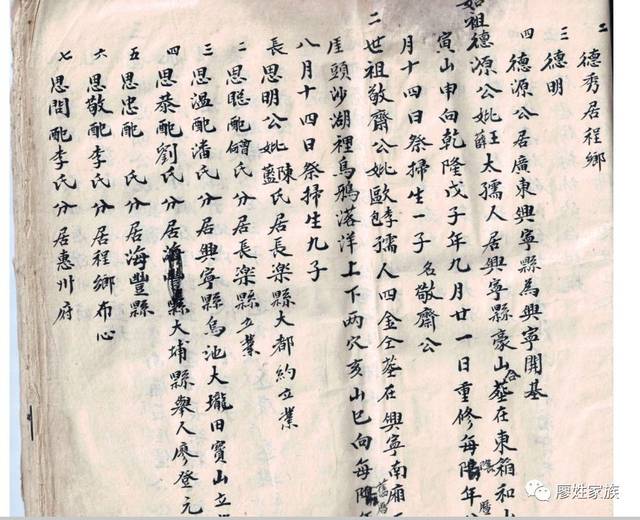 二 德秀居程鄉
三 德明
四 德源公居廣東興寧縣為興寧開基
始祖德源公妣王薛太孺人居興寧縣豪山合葬在東箱和山
寅山申向乾隆戊子年九月廿一日重修每陰年八
月十四日祭掃生一子名敬齋公
二世祖敬齋公妣歐李包孺人四金仝葬在興寧南廂
崖頭沙湖裡烏鴉落洋上下两穴亥山巳向每陰年舊曆
八月十四日祭掃生九子
長 思明公妣陳藍氏居長楽縣大都約立業
二 思聪配曾氏分居長楽縣立業
三 思温配潘氏分居興寧縣烏池大壠田寶山立
四 思泰配劉氏分居大埔縣舉人廖登元
五 思忠配 氏分居海豐縣
六 思敬配李氏分居程鄉布心
七 思問配李氏分居惠州府
廖姓家族